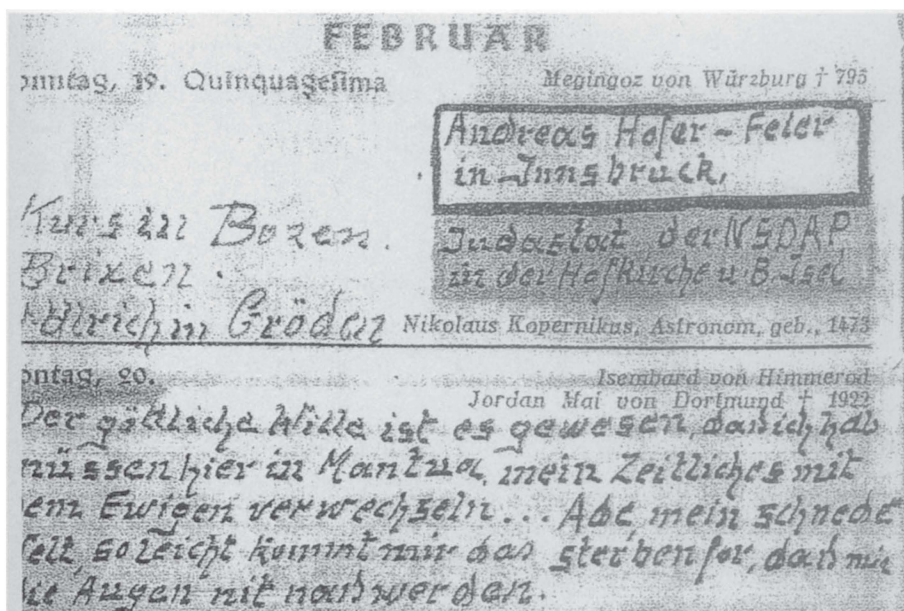 FEBRUAR
onntag, 19. Quinquagesima
Megingoz von Würzburg † 795
Andreas Hofer - Feier
in Innsbruck,
Kurs in Bozen.
Brixen.
Ullrich in Gröden
Judastat der NSDAP
in der Hofkirche u. B. Isel
Nikolaus Kopernikus, Astronom, geb., 1473
ontag, 20.
Isembard von Himmerod
Jordan Mai von Dortmund † 1922
Der göttliche Wille ist es gewesen, daß ich hab
müssen hier in Mantua, mein Zeitliches mit
em Ewigen verwechseln... Ade mein schnede
elt, so leicht kommt mir das sterben for, daß mir
die Augen nit naß werden.